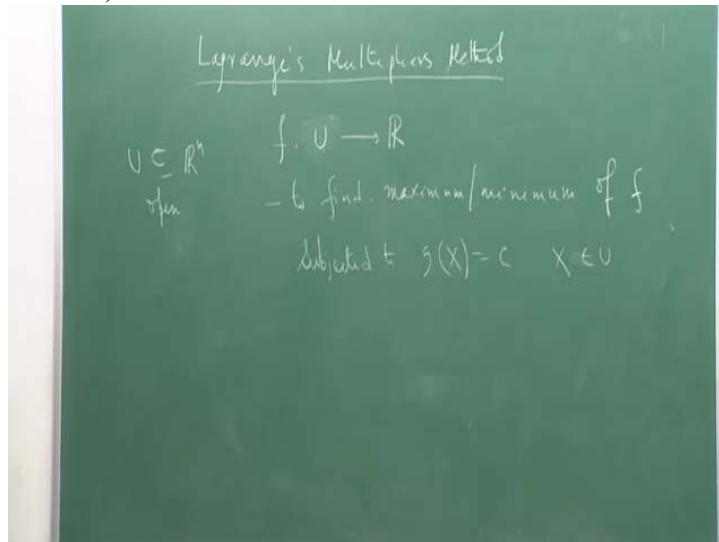 Lagrange's Multipliers Method
f. U → R
U ⊆ Rⁿ
open
- to find. maximum/minimum of f
Subjected to g(X) = C X ∈ U